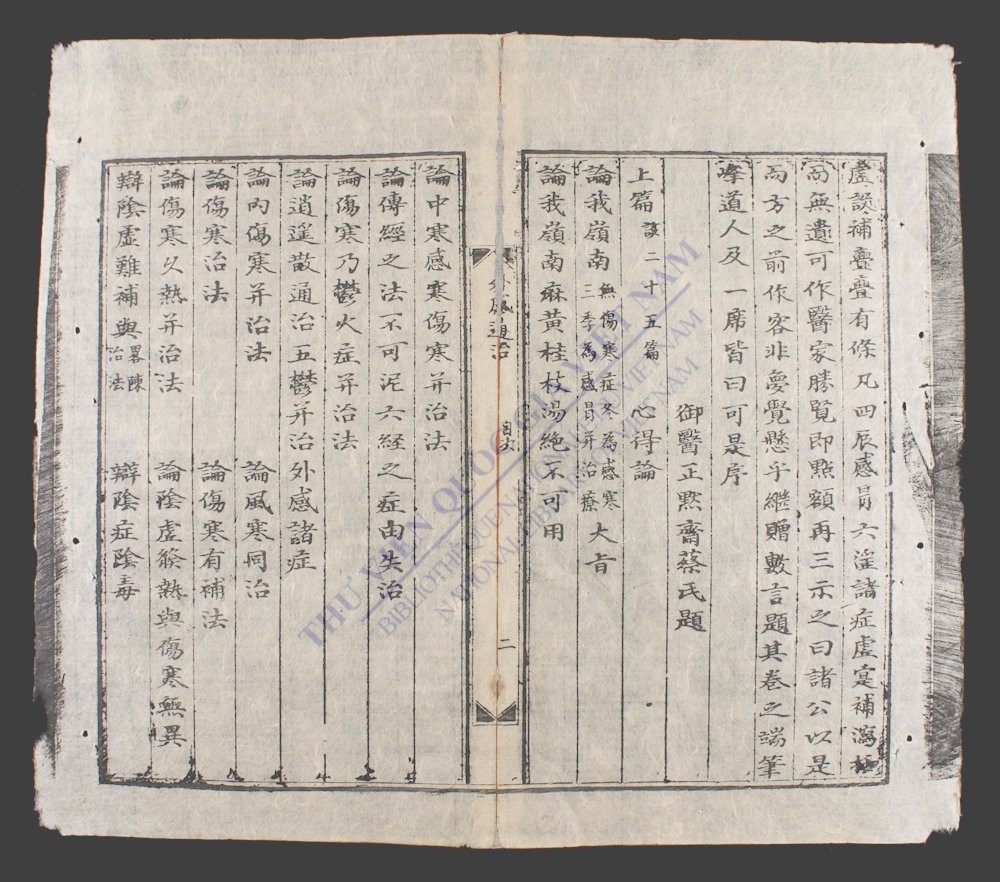 虛談補疊疊有條凡四辰感冒六淫諸症虛寔補瀉極
而無遺可作醫家勝覽即點額再三示之曰諸公以是
而方之前作客非夢覺懸乎繼贈數言題其卷之端筆
峰道人及一席皆曰可是序
御醫正默齋蔡氏題
上篇 該二十五篇 心得論
論我嶺南 無傷寒症冬為感寒 三季為感冒并治療 大旨
論我嶺南麻黃桂枝湯絕不可用
外感通治 目次 二
論中寒感寒傷寒并治法
論傳經之法不可泥六經之症由失治
論傷寒乃鬱火症并治法
論逍遥散通治五鬱并治外感諸症
論內傷寒并治法 論風寒同治
論傷寒治法 論傷寒有補法
論傷寒久熱并治法 論陰虛發熱與傷寒無異
辯陰虛難補與 畧陳 治法 辯陰症陰毒
THƯ VIỆN QUỐC GIA VIỆT NAM
BIBLIOTHÈQUE NATIONALE DU VIETNAM
NATIONAL LIBRARY OF VIETNAM